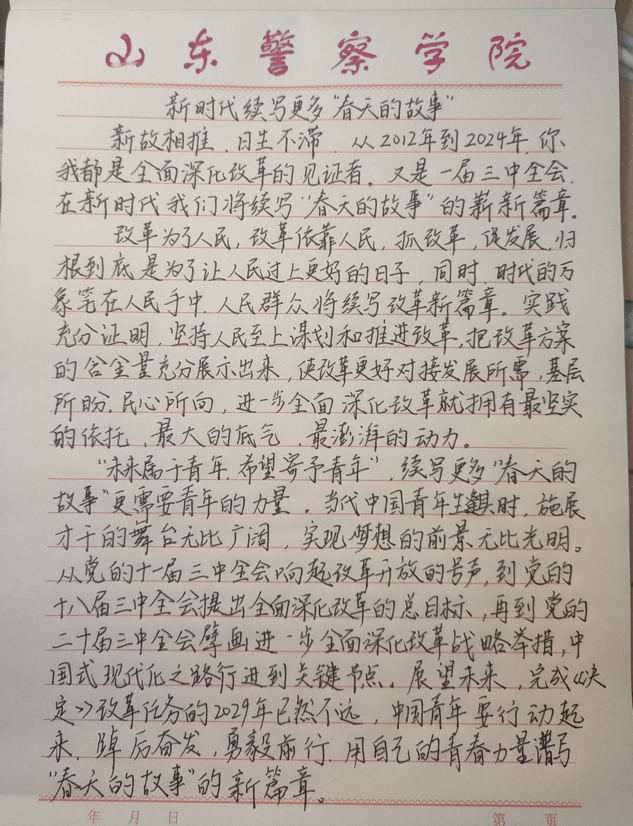 山东警察学院
新时代续写更多“春天的故事”
新故相推,日生不滞,从2012年到2024年,你
我都是全面深化改革的见证者。又是一届三中全会,
在新时代我们将续写“春天的故事”的崭新篇章。
改革为了人民,改革依靠人民,抓改革,促发展,归
根到底是为了让人民过上更好的日子,同时,时代的万
象笔在人民手中,人民群众将续写改革新篇章。实践
充分证明,坚持人民至上谋划和推进改革,把改革方案
的含金量充分展示出来,使改革更好对接发展所需,基层
所盼,民心所向,进一步全面深化改革就拥有最坚实
的依托,最大的底气,最澎湃的动力。
“未来属于青年,希望寄予青年”,续写更多“春天的
故事”更需要青年的力量。当代中国青年生逢其时,施展
才干的舞台无比广阔,实现梦想的前景无比光明。
从党的十一届三中全会响起改革开放的号声,到党的
十八届三中全会提出全面深化改革的总目标,再到党的
二十届三中全会擘画进一步全面深化改革战略举措,中
国式现代化之路行进到关键节点。展望未来,完成《决
定》改革任务的2029年已然不远,中国青年要行动起
来,踔厉奋发,勇毅前行,用自己的青春力量谱写
“春天的故事”的新篇章。
年 月 日 第 页